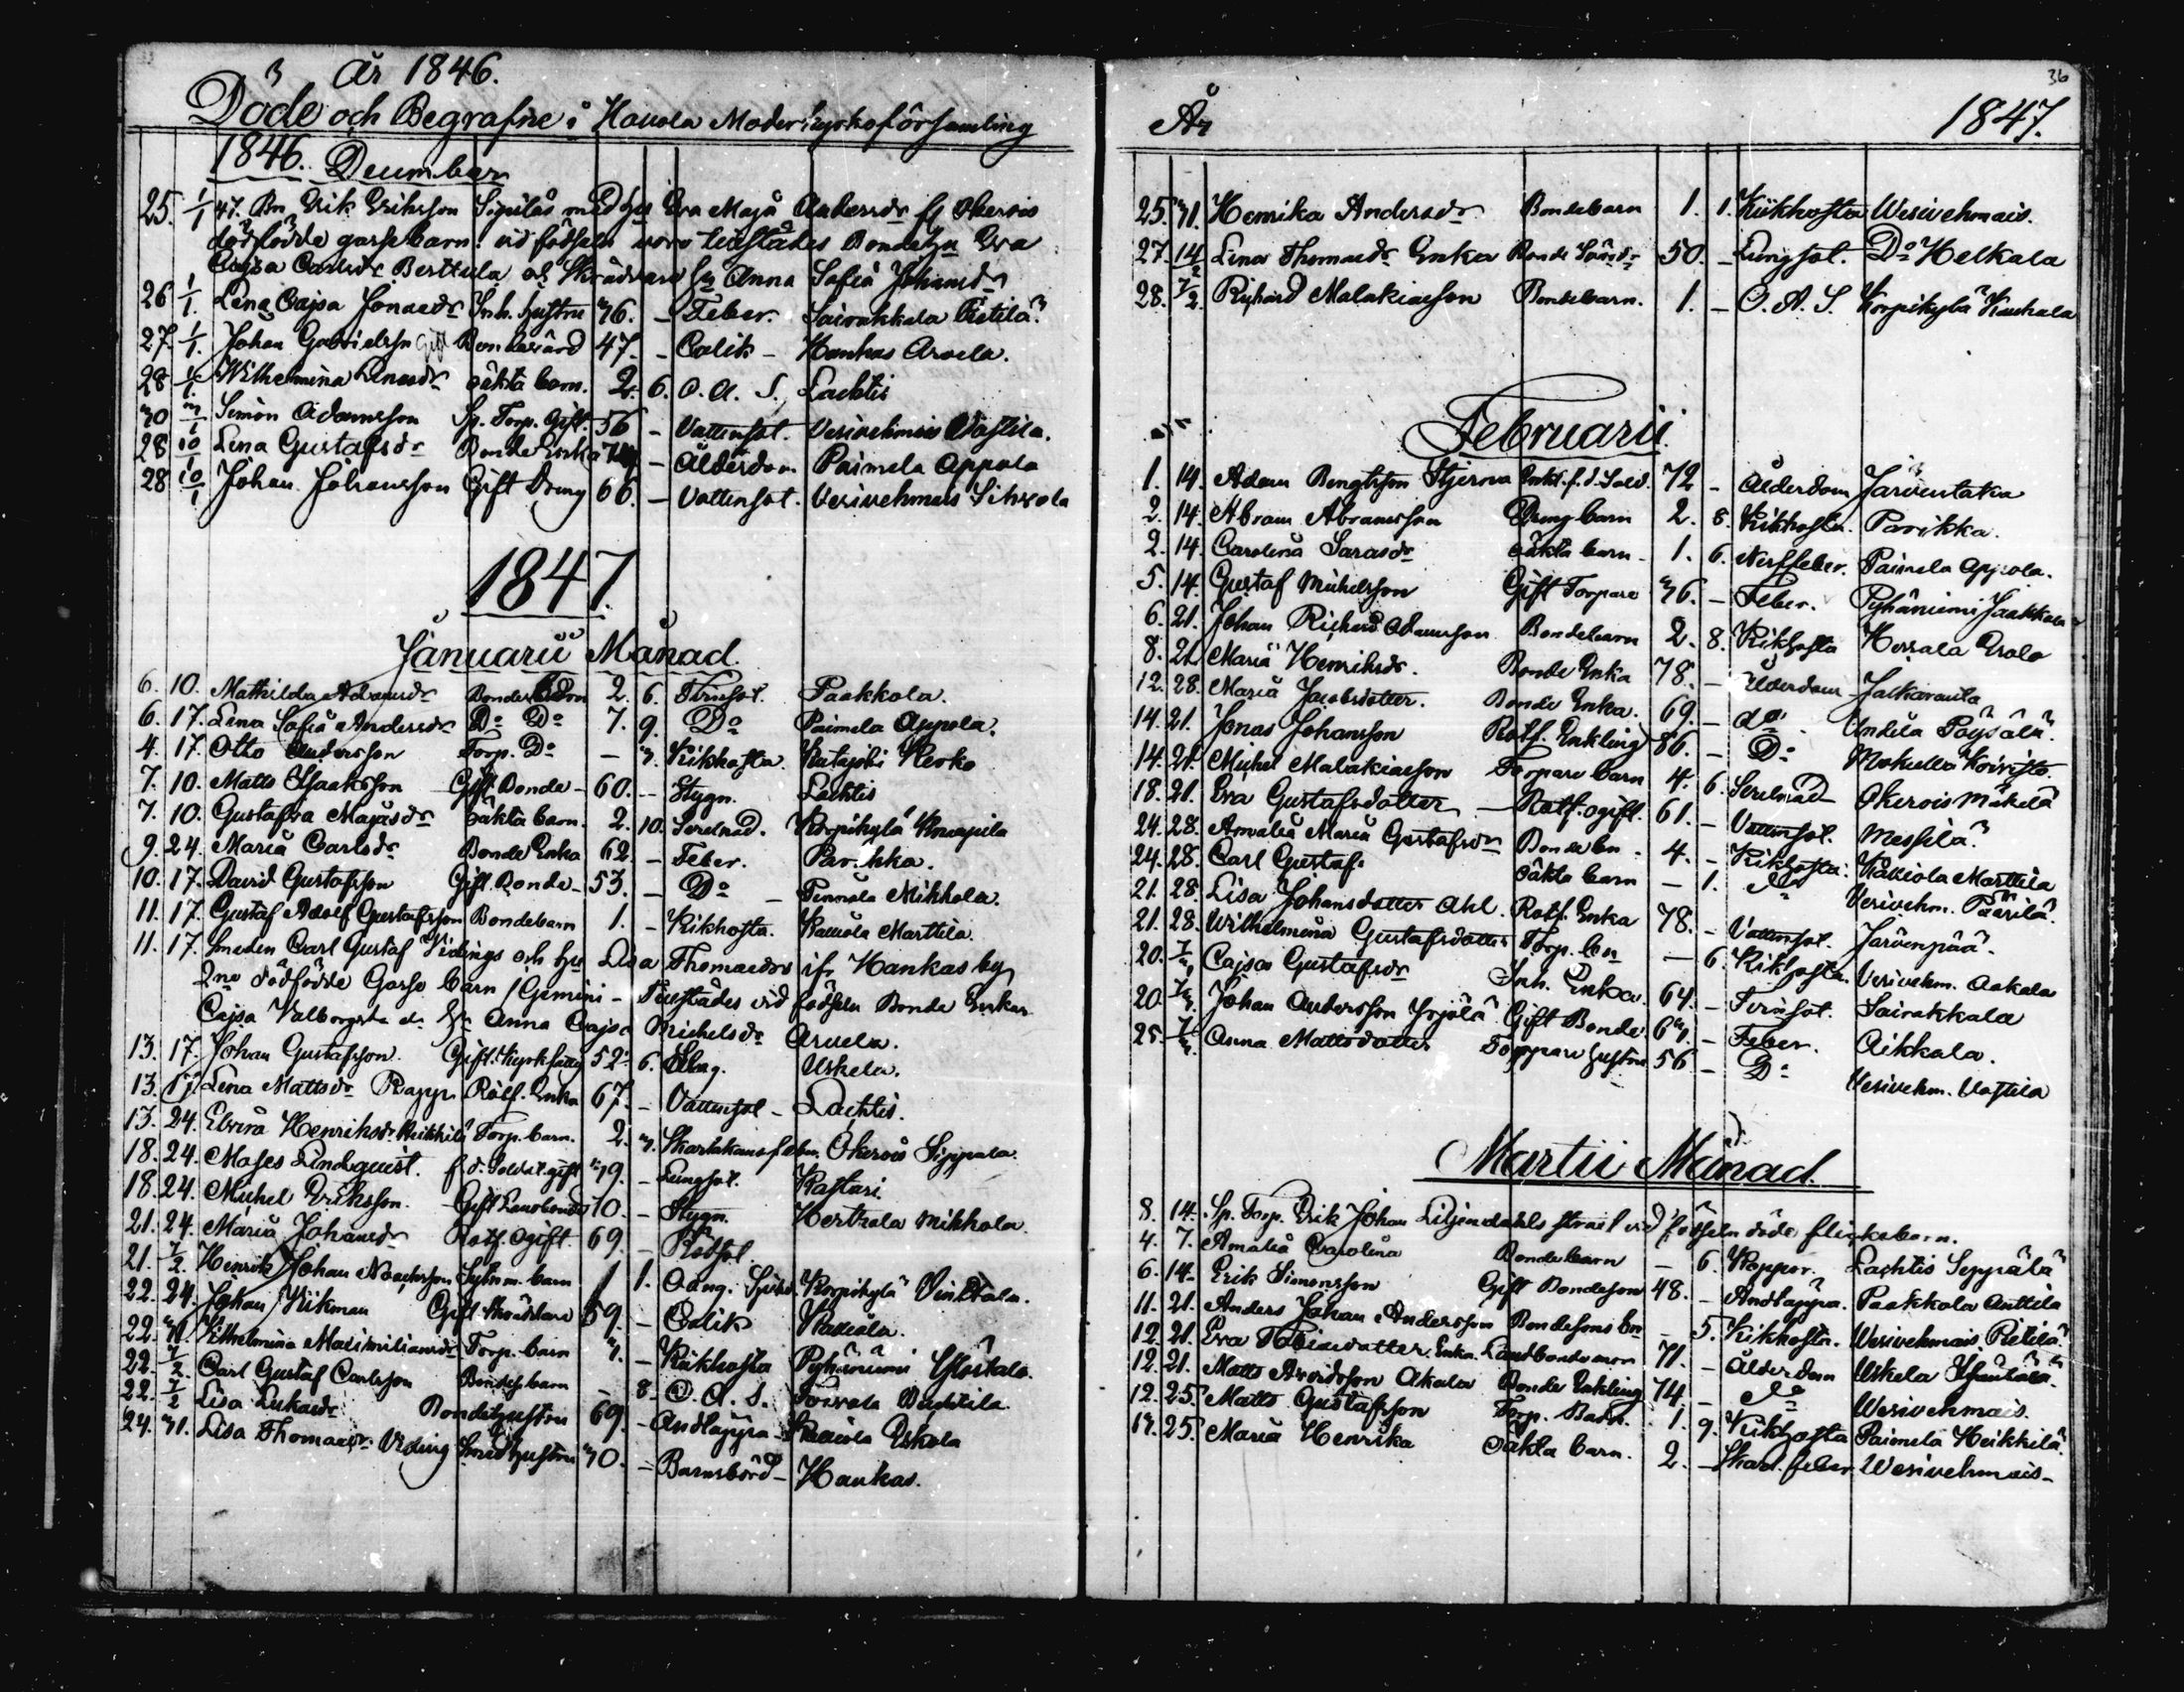 År 1846.
Döde och Begrafne i Hollola Moderkyrkoförsamling
1846. December
25. 1/1 47. Bn Erik Eriksson Sipiläs med hu Eva Maja Andersdr fr Okerois
dödfödde gossebarn: vid födseln voro tillstädes Bondehu Eva
Cajsa Carlsdr Berttula och Skräddare hu Anna Sofia Johansdr
26 1/1. Lena Cajsa Jonaedr Inh. hustru 36. - Feber. Sairakkala Pietilä.
27. 1/1. Johan Gabrielsson Gift Bondevärd 47. - Colik - Hankas Arvela.
28 1/1. Wilhelmina Lenasdr oäkta barn. 2. 6. O. A. S. Lachtis
30 3/1 Simon Adamsson Sp. Torp. Gift. 56 - Vattusot. Vesivehmais Vastila.
28 10/1 Lena Gustafsdr Bonde Enka 74 - Ålderdom Paimela Appola
28 10/1 Johan Johansson Gift Dreng 66. - Vattusot. Vesivehmais Sihvola
1847.
Januarii Månad.
6. 10. Mathilda Adamsdr Bondebarn 2. 6. Tvinsot. Paakkola.
6. 17. Lena Sofia Andersdr Do Do 7. 9. Do Paimela Appola.
4. 17. Otto Andersson Torp. Do - 3. Kikhosta. Kutajoki Kerko
7. 10. Matts Isaaksson Gift Bonde - 60. - Stygn. Lachtis
7. 10. Gustafva Majasdr oäkta barn. 2. 10. Korpikylä Knaapila
9. 24. Maria Carlsdr Bonde Enka 62. - Feber. Parikka.
10. 17. David Gustafsson Gift Bonde - 53. - Do - Pennala Mikkola.
11. 17. Gustaf Adolf Gustafsson Bondebarn 1. - Kikhosta. Kalliola Marttila.
11. 17. Smeden Carl Gustaf Vidings och hu Lisa Thomaedrs ifr Hankas by
2ne dödfödde Gosse barn (Gemini - Tillstädes vid födseln Bonde Enkan
Cajsa Valborgsta och hu Anna Cajsa Michelsdr Arvela.
13. 17. Johan Gustafsson. Gift. Kyrkfattig 52. 6. Slag. Uskela.
13. 17. Lena Mattsdr Rapp. Rotf. Enka 67. - Vattusot - Lachtis.
13. 24. Elvira Henriksdr Heikkilä Torp. barn. 2. 3. Skarlakansfeber. Okerois Sippala.
18. 24. Moses Lindquist. f. d. Soldat gift 39. - Lungsot. Kastari
18. 24. Michel Eriksson. Gift Landbonde 70. - Stygn. Hertsala Mikkola.
21. 24. Maria Johansdr Rotf. ogift. 69. - Rödsot.
21. 7/2. Henrik Johan Noachsson 1 1. Korpikylä
22. 24. Johan Wikman Gift Skräddare 59. - Colik Kalliola.
22. 31. Vilhelmina Maximiliansdr Torp. barn 3. - Kikhosta Pyhäniemi
22. 7/2. Carl Gustaf Carlsson Bondesbarn - 8. O. A. S. Toivola
22. 7/2 Lisa Lukaedr Bondehustru 69. - Andtäppa Kalliola Eskola
24. 31. Lisa Thomaedr Viding Smedhustru 30. - Barnsbörd - Hankas.
36
År 1847.
25. 31. Henrika Andersdr Bondebarn 1. 1. Kikhosta Wesivehmais.
27. 14/2 Lena Thomaedr Enka 50. - Lungsot. Do Helkala
28. 7/2. Richard Malakiasson Bondebarn. 1. - O. A. S. Korpikylä Kaukala
Februarii
1. 14. Adam Bengtsson Stjerna Enkl. f. d. Sold. 72 - Ålderdom Järventaka
2. 14. Abram Abramsson Dreng barn 2. 8. Kikhosta. Parikka.
2. 14. Carolina Sarasdr oäkta barn - 1. 6. Nerffeber. Paimela Appola.
5. 14. Gustaf Michelsson Gift Torpare 36. - Feber. Pyhäniemi Jaakkola
6. 21. Johan Richard Adamsson Bondebarn 2. 8. Kikhosta Hersala Erola
8. 21 Maria Henriksdr. Bonde Enka 78. - Ålderdom Jalkaranta
12. 28. Maria Jacobsdotter. Bonde Enka. 69. - do. Andila Pöysälä.
14. 21. Jonas Johansson Rotf. Enkling 86. - Do Mokulla Koivisto.
14. 21. Michel Malakiasson Torpare barn 4. 6. Okerois Mäkelä
18. 21. Eva Gustafsdotter - Rotf. ogift. 61. - Vattusot. Messilä.
24. 28. Amalia Maria Gustafsdr Bonde bn. 4. - Kikhosta. Kaliola Marttila
24. 28. Carl Gustaf oäkta barn - 1. Do Vesivehm. Päärilä.
21. 28. Lisa Johansdotter Ahl. Rotf. Enka 78. - Vattusot. Järvenpää.
21. 28. Wilhelmina Gustafsdotter Torp. bn - 6. Kikhosta. Vesivehm. Aakala
20. 7/3 Cajsa Gustafsdr Inh. Enka. 64. - Tvinsot. Sairakkala
20 7/3. Johan Andersson Yrjölä Gift Bonde. 63. - Feber. Aikkala.
25. 7/3. Anna Mattsdotter Torpare hustru 56 - Do Vesivehm. Vastila
Martii Månad.
8. 14. Sp. Torp. Erik Johan Liljendahls strax vid födseln döde flickebarn.
4. 7. Amalia Carolina Bondebarn - 6. Koppor. Lachtis Seppälä
6. 14. Erik Simonsson Gift Bondeson 48. - Andtäppa. Paakkola Anttila
11. 21. Anders Johan Andersson Bondesons bn - 5. Kikhosta. Wesivehmais Pietilä.
12. 21. Eva Tobiaedotter Enka. Landbondemor 71. - Ålderdom Uskela
12. 21. Matts Arvidsson Akala Bonde Enkling 74 - Do Wesivehmais.
12. 25. Matts Gustafsson Torp. Barn. 1. 9. Kikhosta Paimela Heikkilä.
17. 25. Maria Henrika oäkta barn. 2. - Skarl. feber Wesivehmais -